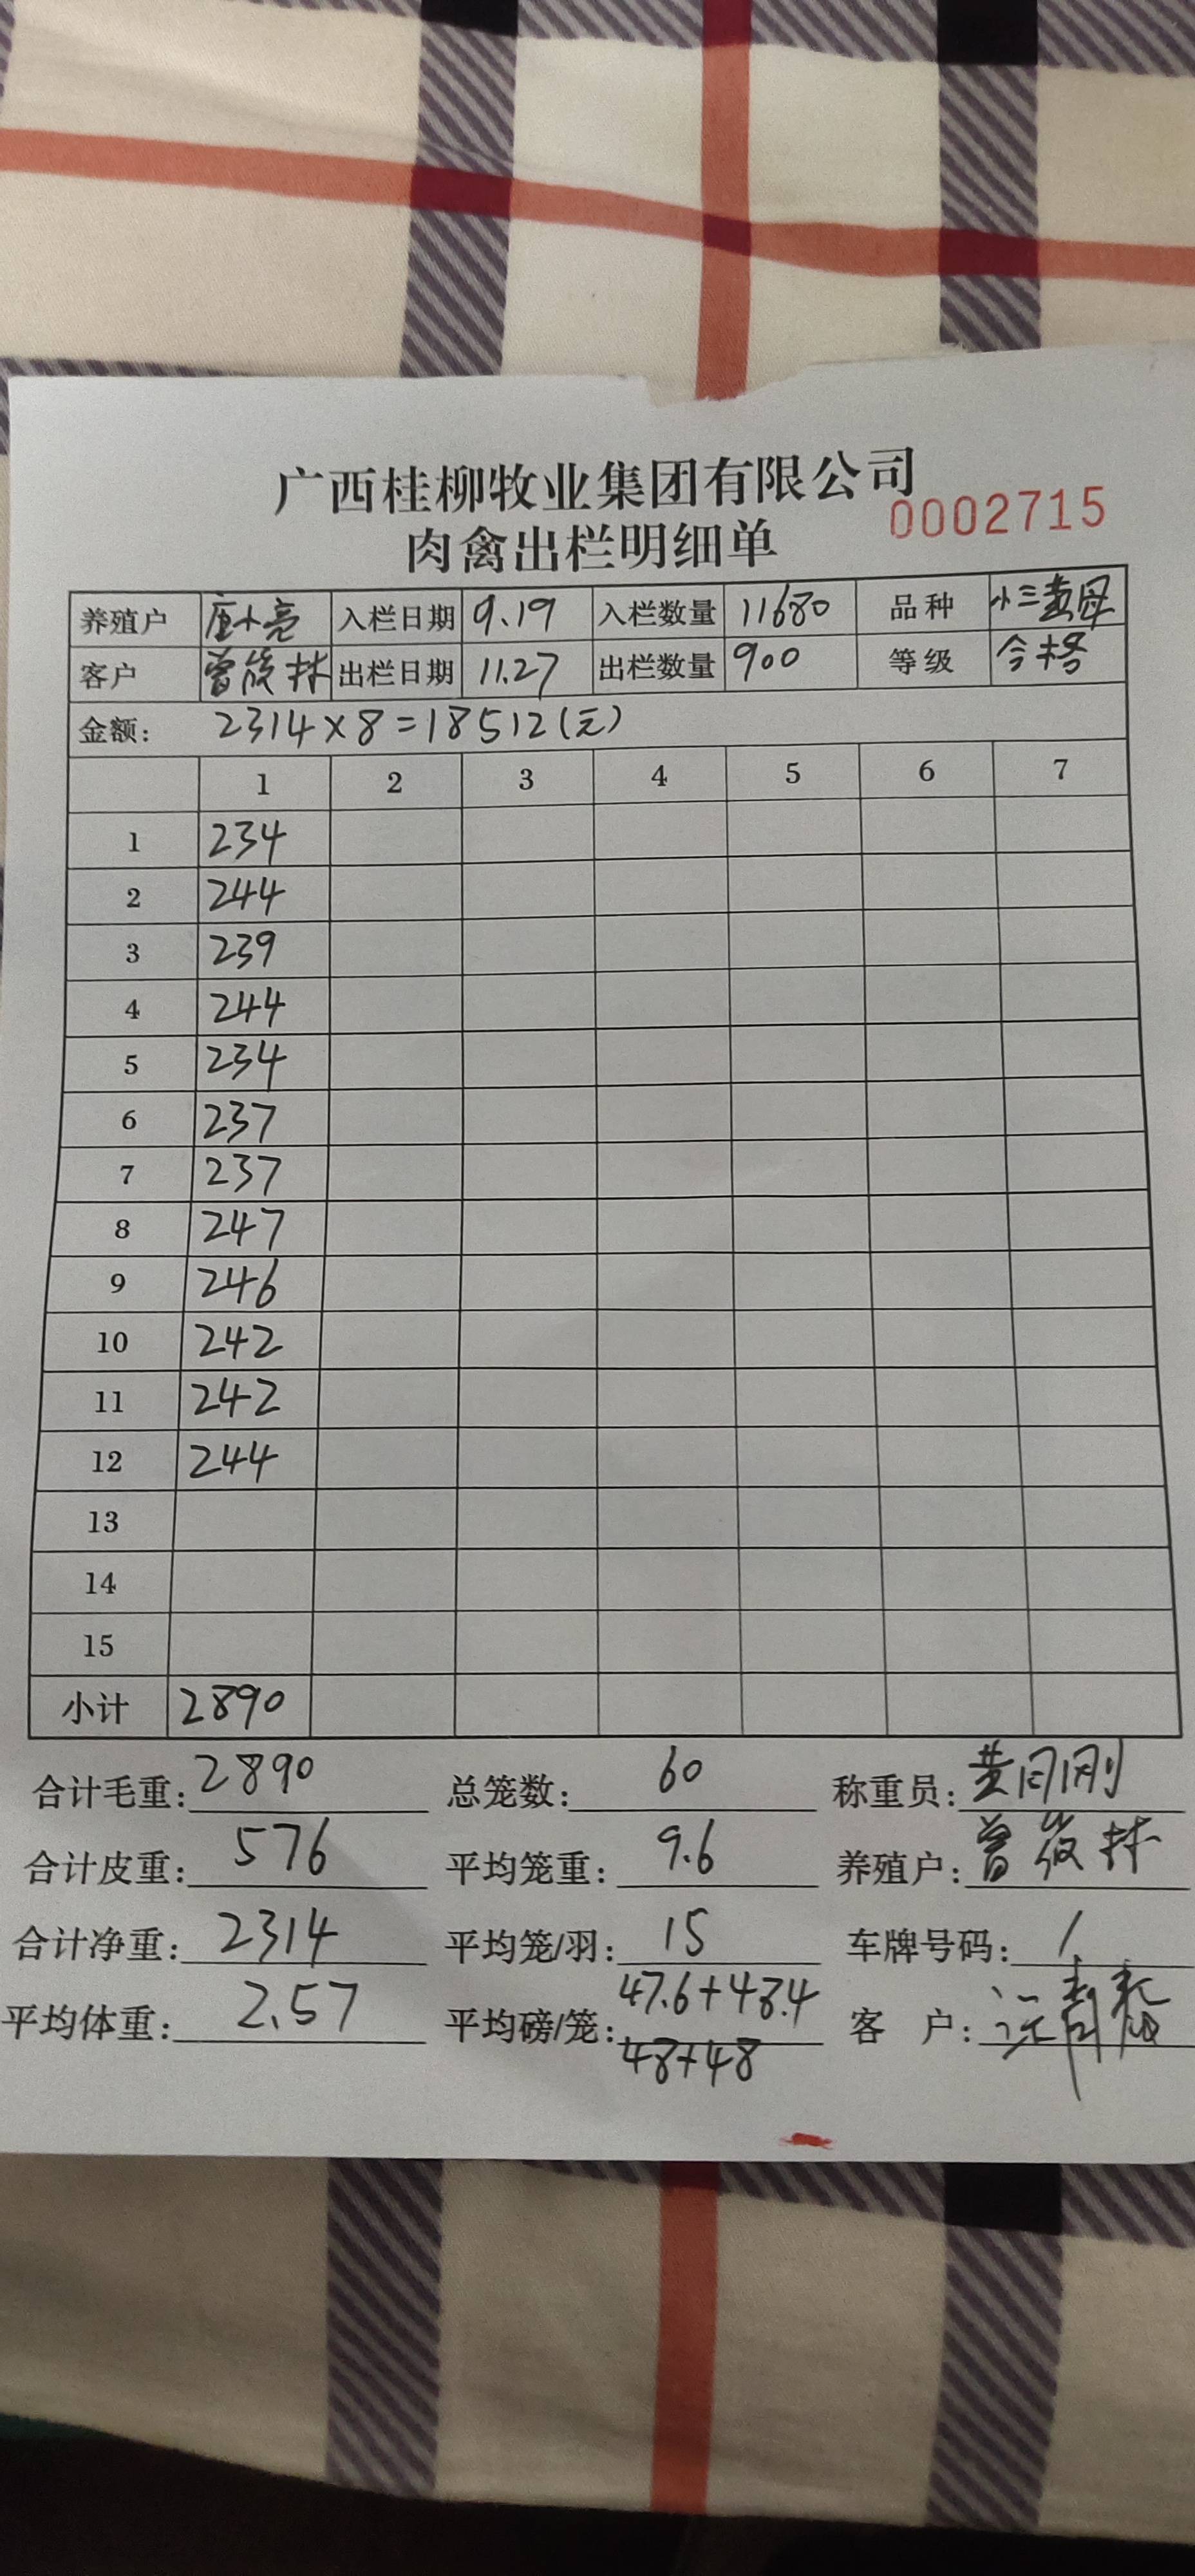 广西桂柳牧业集团有限公司
0002715
肉禽出栏明细单
养殖户 唐小亮 入栏日期 9.19 入栏数量 11680 品种 小三黄母
客户 曾筱林 出栏日期 11.27 出栏数量 900 等级 合格
金额: 2314×8=18512(元)
1 2 3 4 5 6 7
1 234
2 244
3 239
4 244
5 234
6 237
7 237
8 247
9 246
10 242
11 242
12 244
13
14
15
小计 2890
合计毛重: 2890 总笼数: 60 称重员:
合计皮重: 576 平均笼重: 9.6 养殖户: 曾筱林
合计净重: 2314 平均笼/羽: 15 车牌号码: /
平均体重: 2.57 平均磅/笼: 47.6+48.4 客 户:
48+48